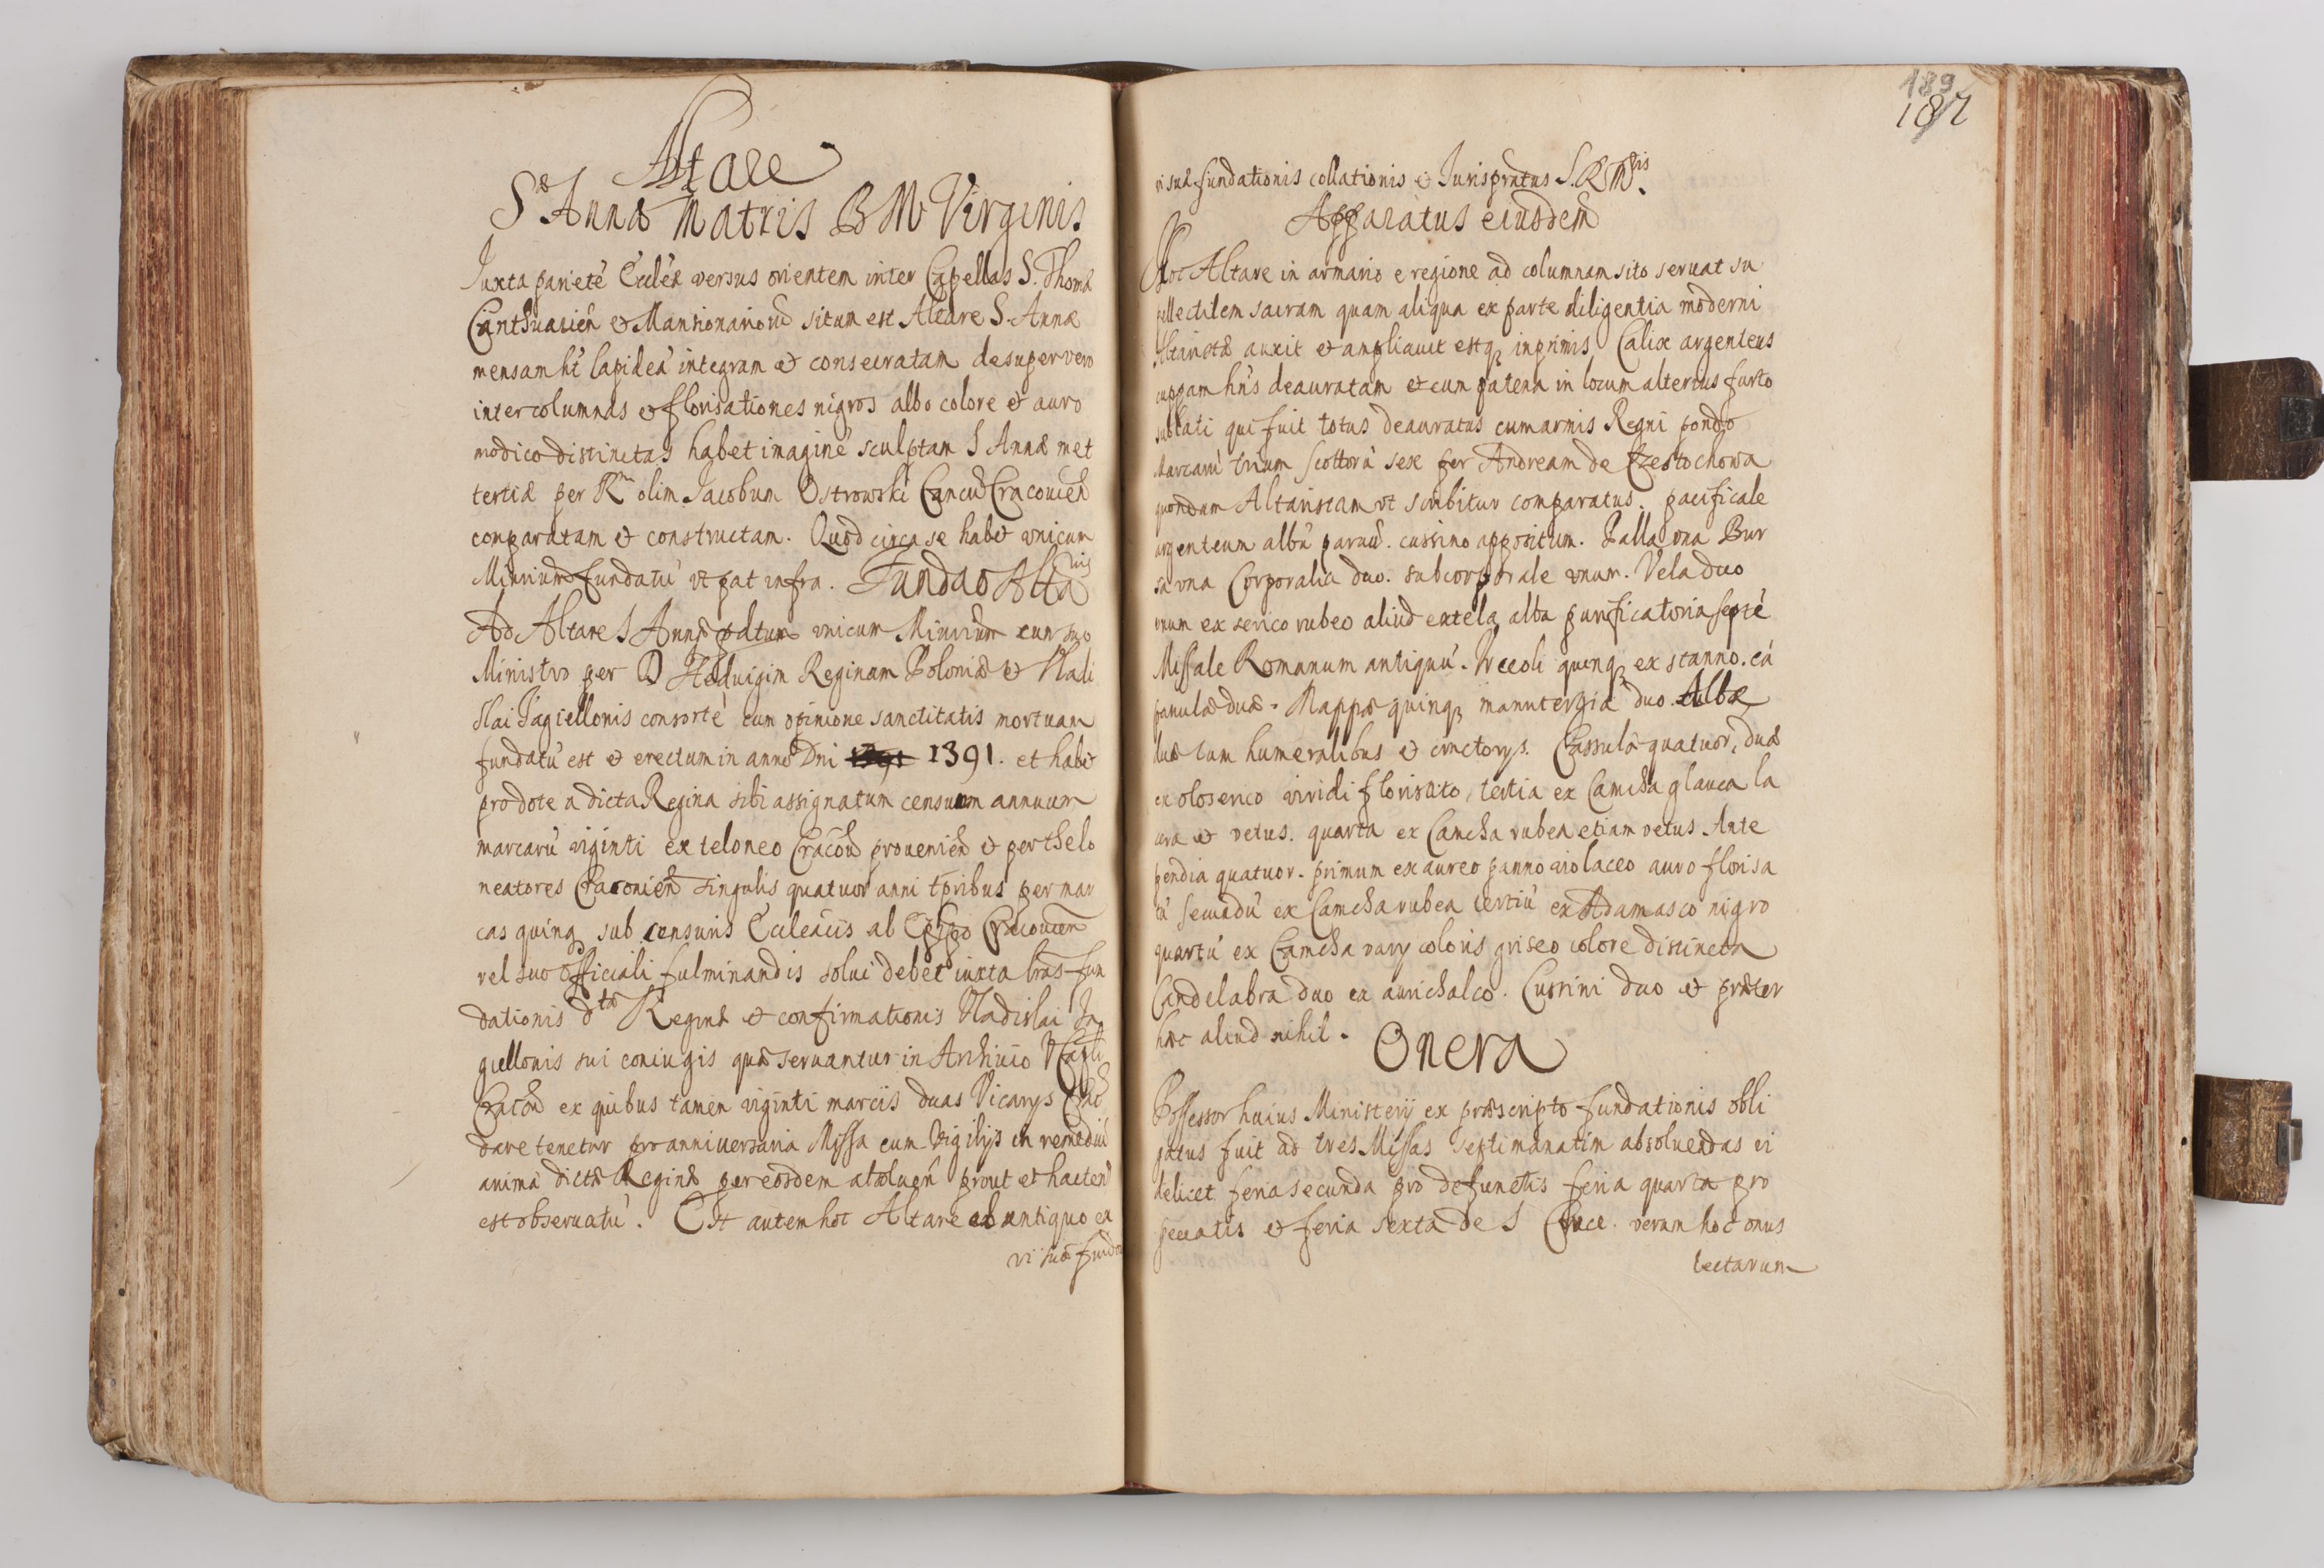 Altare
Sᵃᵉ Annæ Matris B M Virginis
Iuxta parietē Ecclĕæ versus orientem inter Capellas S. Thomæ
Cantuarien̄ et Mansionariorū situm est Altare S. Annæ
mensam ht̄ lapideā integram et consecratam desuper vero
inter columnas et florisationes nigros albo colore et auro
modico distinctas habet imaginē sculptam S Annæ met
tertiæ per Rᵐ olim Jacobum Ostrowski Canc̄u Cracouien̄
comparatam et constructam. Quod circa se habet vnicum
Min̄rium fundatū vt pat infra. Fundao Altaris
Ad Altare S Annæ pdtum vnicum Min̄rium cum suo
Ministro per D Heduigim Reginam Poloniæ et Vladi
slai Jagiellonis consortē cum opinione sanctitatis mortuam
fundatū est et erectum in anno Dn̄i 1391. et habet
pro dote a dicta Regina sibi assignatum censum annuum
marcarū viginti ex teloneo Cracou̅ prouenien̄ et per thelo
neatores Cracouien̄ singulis quatuor anni tp̄ribus per mar
cas quinq₃ sub censuris Eccleăcis ab Ep̄po Cracouien̄
vel suo officiali fulminandis solui debet iuxta lrās fun
dationis dᵗᵃᵉ Reginæ et confirmationis Vladislai Ja
giellonis sui coniugis quæ seruantur in Archiuio V Capli
Cracou̅ ex quibus tamen viginti marcis duas Vicarys Crac̄
dare tenetur pro anniuersaria Missa cum Vigilijs in remediū
animæ dictæ Reginæ per eosdem absoluen̄ prout et hacten̄
est obseruatū. Est autem hoc Altare ab antiquo ex
vi suæ funda
189
187
vi suæ fundationis collationis et Jurisprutus S. R Mᵗⁱˢ.
Apparatus eiusdem
Hoc Altare in armario e regione ad columnam sito seruat su
pellectilem sacram quam aliqua ex parte diligentia moderni
Altaristæ auxit et ampliauit estq₃ inprimis Calix argenteus
cuppam hn̄s deauratam et cum patena in locum alterius furto
sublati qui fuit totus deauratus cum armis Regni pondo
Marcarū trium scottorū sex per Andream de Czestochowa
quondam Altaristam vt scribitur comparatus. pacificale
argenteum albū paruū. cussino appositum. Palla vna Bur
sa vna Corporalia duo. subcorporale vnum. Vela duo
vnum ex serico rubeo aliud ex tela alba purificatoria septē
Missale Romanum antiquū. Vrceoli quinq₃ ex stanno. cā
panulæ duæ. Mappæ quinq₃ manutergia duo. Albæ
duæ cum humeralibus et cinctorys. Cassulæ quatuor, duæ
ex oloserico viridi floristito, tertia ex Camcha glauca la
cera et vetus. quarta ex Camcha rubea etiam vetus. Ante
pendia quatuor. primum ex aureo panno violaceo auro florisa
tū secudū ex Camcha rubea tertiū ex Adamasco nigro
quartū ex Camcha vary coloris griseo colore distincta
Candelabra duo ex aurichalco. Cussini duo et præter
hæc aliud nihil.
Onera
Possessor huius Ministerij ex præscripto fundationis obli
gatus fuit ad tres Missas septimanatim absoluendas vi
delicet feria secunda pro defunctis feria quarta pro
peccatis et feria sexta de S Cruce. verum hoc onus
lectarum